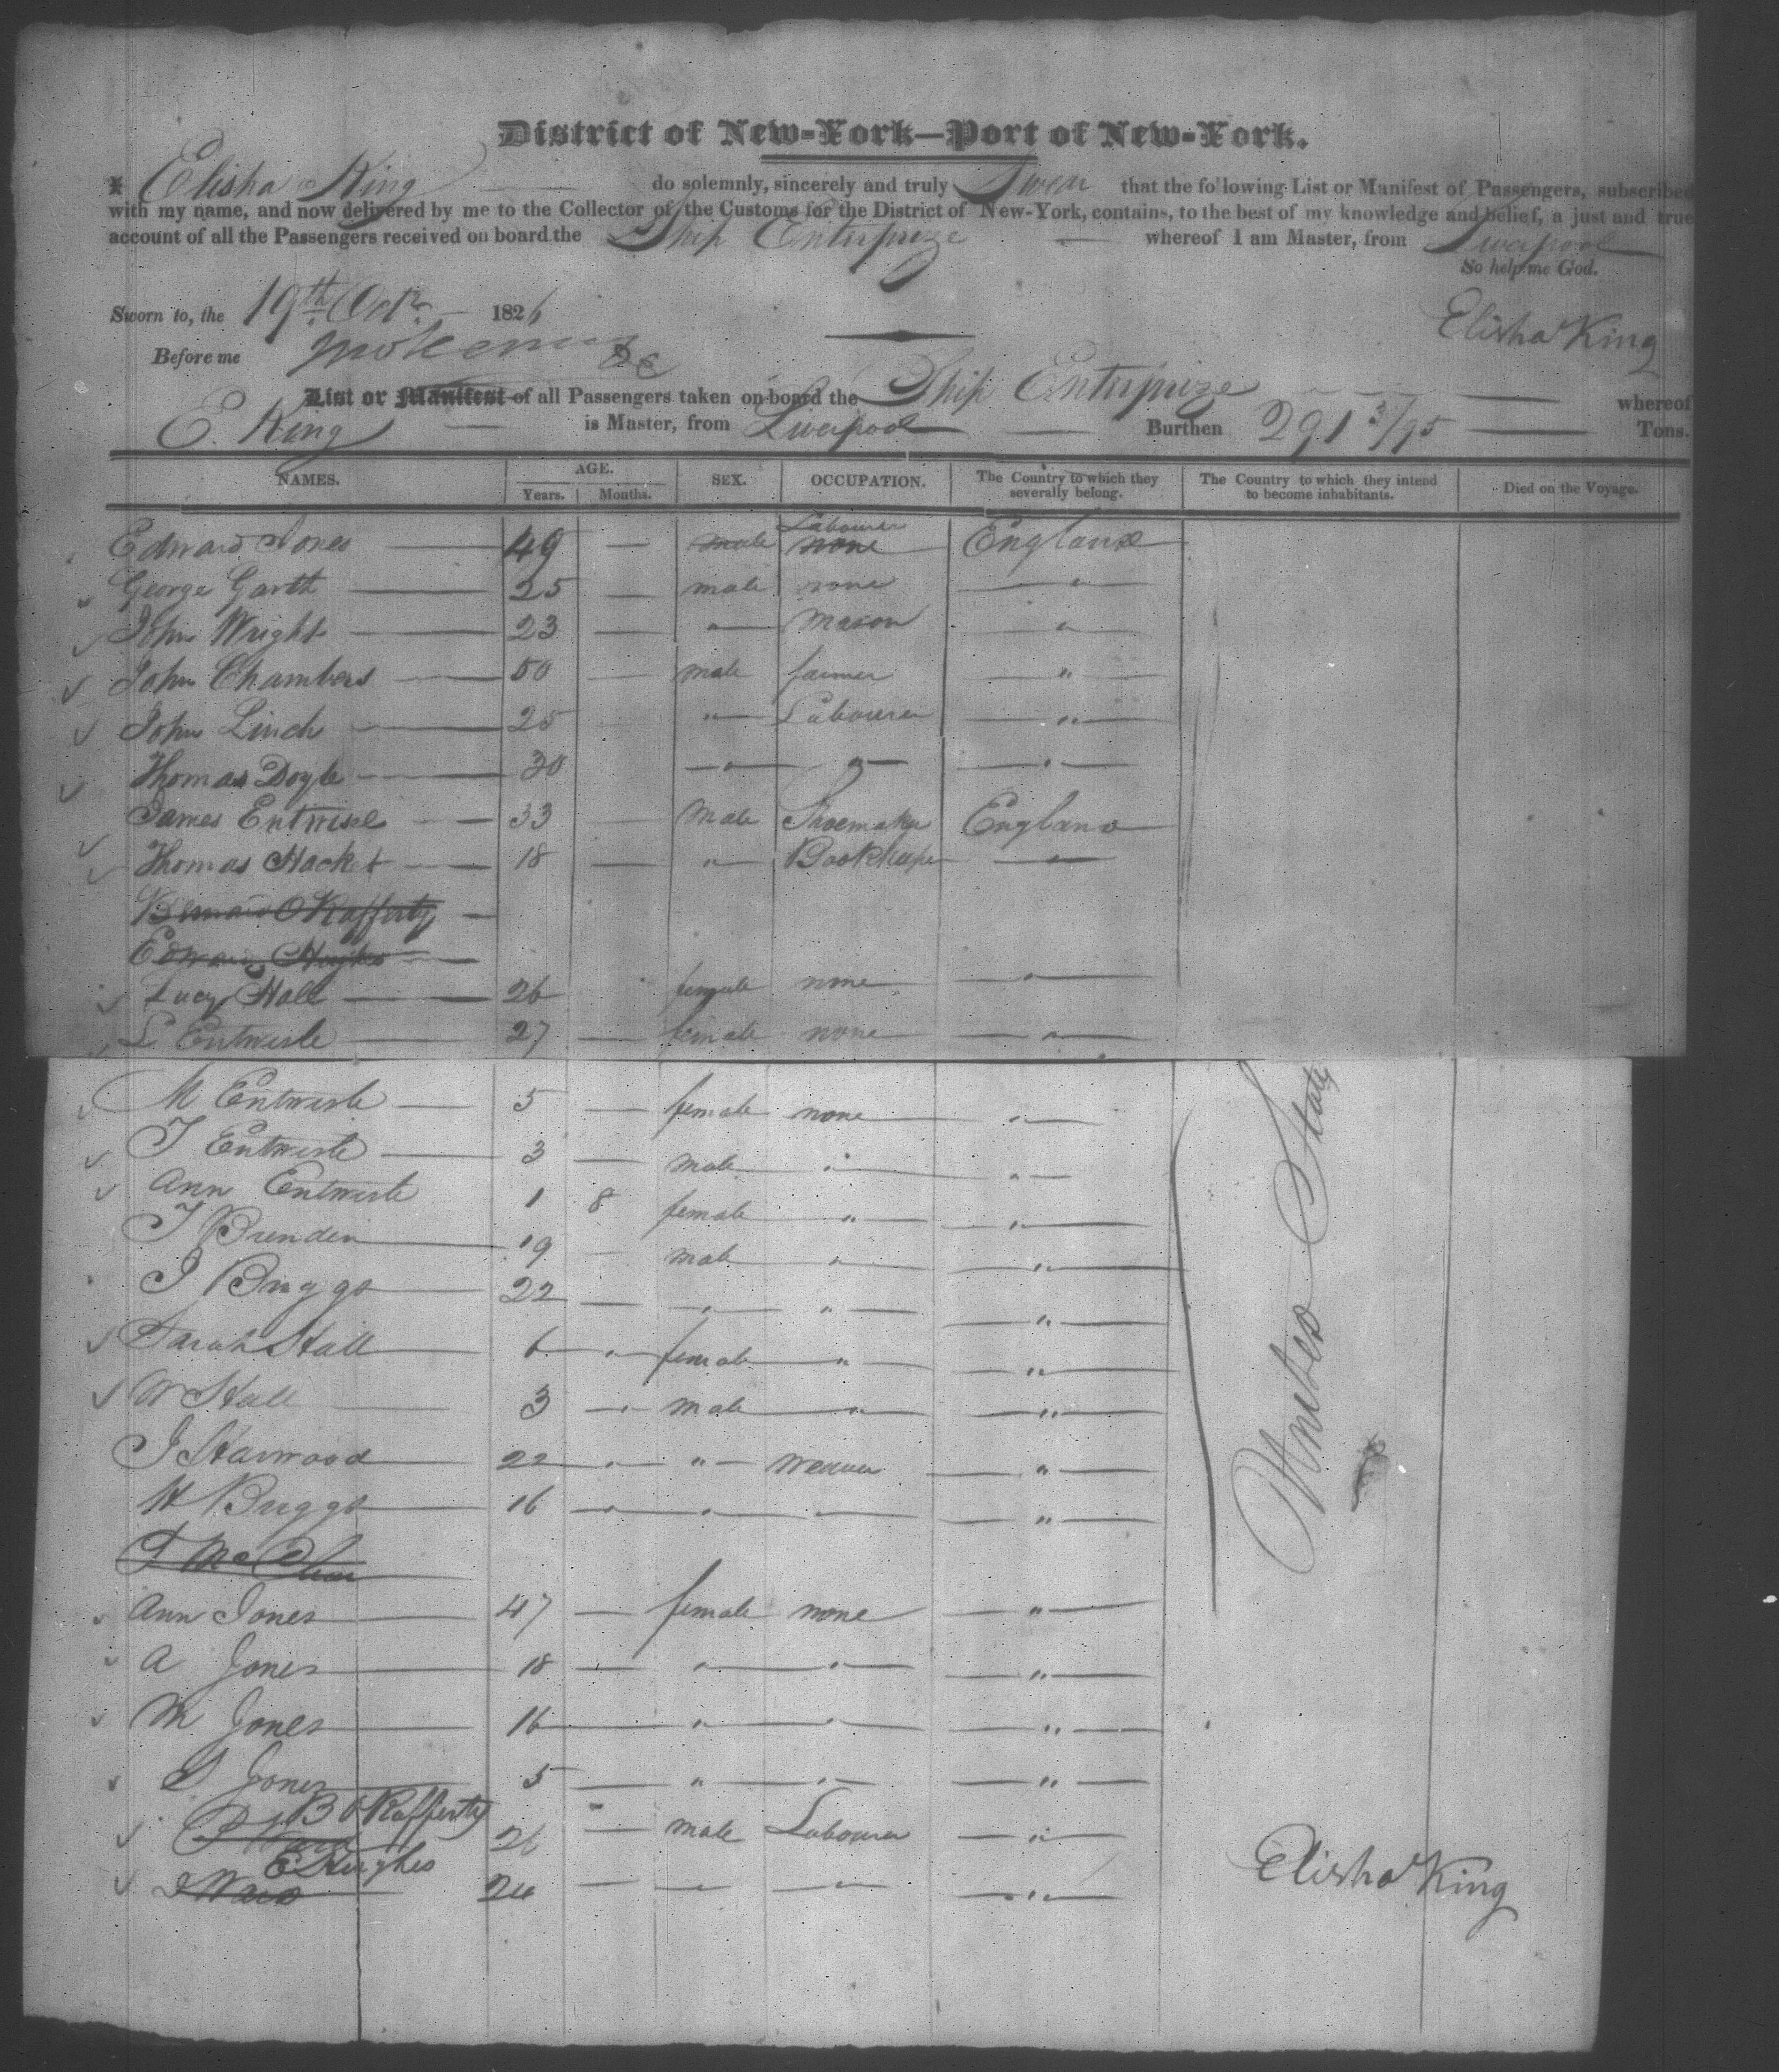 District of New-York—Port of New-York.
I Elisha King do solemnly, sincerely and truly Swear that the following List or Manifest of Passengers, subscribed
with my name, and now delivered by me to the Collector of the Customs for the District of New-York, contains, to the best of my knowledge and belief, a just and true
account of all the Passengers received on board the Ship Enterprize whereof I am Master, from Liverpool
So help me God.
Sworn to, the 19th Octr 1826
Elisha King
Before me
List or Manifest of all Passengers taken on board the Ship Enterprize whereof
E. King is Master, from Liverpool Burthen 291 3/95 Tons.
NAMES. AGE. Years. Months. SEX. OCCUPATION. The Country to which they severally belong. The Country to which they intend to become inhabitants. Died on the Voyage.
Edward Jones 49 — male none Labourer England
George Garth 25 — male none "
John Wright 23 — " mason "
John Chambers 50 — male farmer "
John Linch 25 " Labourer "
Thomas Doyle 30 " " "
James Entwisle 33 male Shoemaker England
Thomas Hacket 18 — " Bookkeeper "
Bernard O Rafferty
Edward Hughes
Lucy Hall 26 female none "
L Entwisle 27 — female none "
M Entwisle 5 — female none "
T Entwisle 3 — male " "
Ann Entwisle 1 8 female " "
T Brunden 19 — male " "
J Briggs 22 — " " "
Sarah Hall 6 " female " "
W Hall 3 " male " "
J Harwood 22 " " weaver "
H Briggs 16 " " — "
Ann Jones 47 — female none "
A Jones 18 — " " "
M Jones 16 — " " "
S Jones 5 — " " "
B O Rafferty 26 — male Labourer "
E Hughes 24 — " " "
J Ward
United States
Elisha King